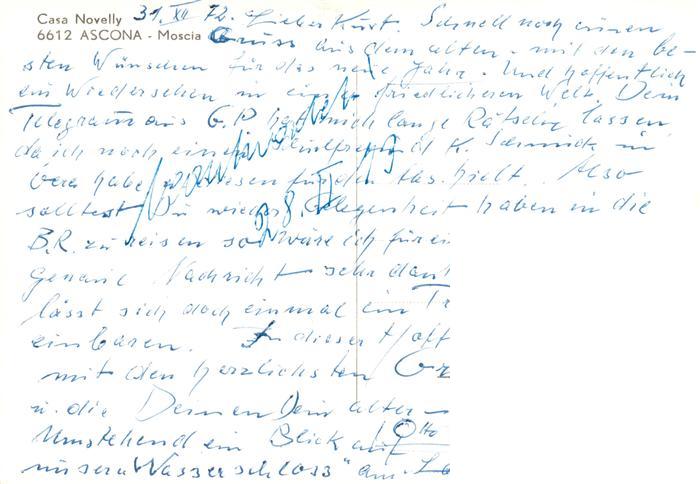 Casa Novelly
6612 ASCONA - Moscia
31. XII 72. Lieber Kurt. Schnell noch einen
Gruss aus dem alten - mit den be-
sten Wünschen für das neue Jahr. Und hoffentlich
ein Wiedersehen in einer friedlicheren Welt. Dein
Telegramm aus G.P. hat mich lange Rätseln lassen
da ich noch einen Schulfreund K. Schmidt in
habe diesen für den hielt. Also
solltest Du wieder Gelegenheit haben in die
B.R. zu reisen so wäre ich für ei
genaue Nachricht sehr dan
lässt sich doch einmal ein Tr
einbaren. In dieser Hoff
mit den herzlichsten Gr
u. die Deinen Dein alter
Otto
Umstehend ein Blick auf
unser "Wasserschloss" am L
beantwortet
28. II 79